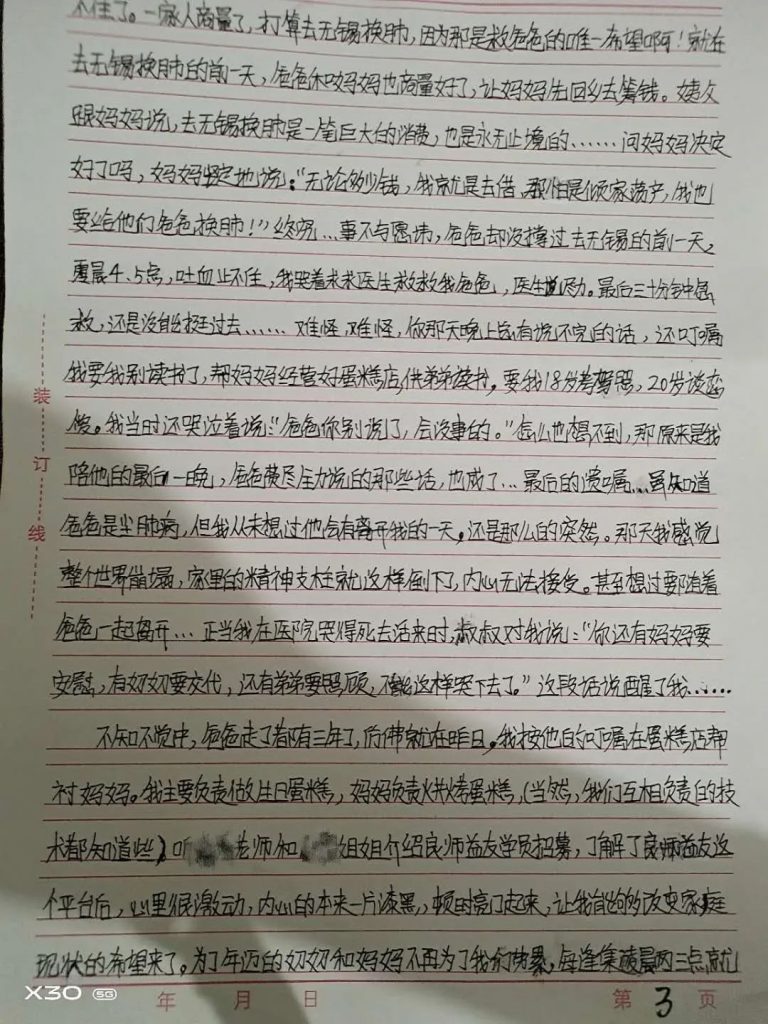 不住了。一家人商量了，打算去无锡换肺，因为那是救爸爸的唯一希望啊！就在
去无锡换肺的前一天，爸爸和妈妈也商量好了，让妈妈先回乡去筹钱。
跟妈妈说，去无锡换肺是一笔巨大的消费，也是永无止境的……问妈妈决定
好了吗，妈妈坚定地说："无论多少钱，我就是去借，那怕是倾家荡产，我也
要给他们爸爸换肺！"终究…事不与愿违，爸爸却没撑过去无锡的前一天，
凌晨4.5点，吐血止不住，我哭着求求医生救救我爸爸，医生尽力。最后三十分钟急
救，还是没能挺过去……难怪，难怪，你那天晚上总有说不完的话，还叮嘱
我要我别读书了，帮妈妈经营好蛋糕店，供弟弟读书，要我18岁考驾照，20岁谈恋
爱。我当时还哭泣着说："爸爸你别说了，会没事的。"怎么也想不到，那原来是我
陪他的最后一晚，爸爸费尽全力说的那些话，也成了…最后的遗嘱…虽知道
爸爸是尘肺病，但我从未想过他会有离开我的一天，还是那么的突然。那天我感觉
整个世界崩塌，家里的精神支柱就这样倒下了，内心无法接受。甚至想过要随着
爸爸一起离开…正当我在医院哭得死去活来时，叔叔对我说："你还有妈妈要
安慰，有奶奶要交代，还有弟弟要照顾，不能这样哭下去了。"这段话说醒了我……
不知不觉中，爸爸走了都有三年了，仿佛就在昨日。我按他的叮嘱在蛋糕店帮
衬妈妈。我主要负责做生日蛋糕，妈妈负责烘烤蛋糕，（当然，我们互相负责的技
术都知道些）听老师和姐姐介绍良师益友学员招募，了解了良师益友这
个平台后，心里很激动，内心的本来一片漆黑，顿时亮起来，让我能够改变家庭
现状的希望来了。为了年迈的奶奶和妈妈不再为了我们劳累，每逢集凌晨两三点就
装
订
线
年 月 日 第3页
X30 5G